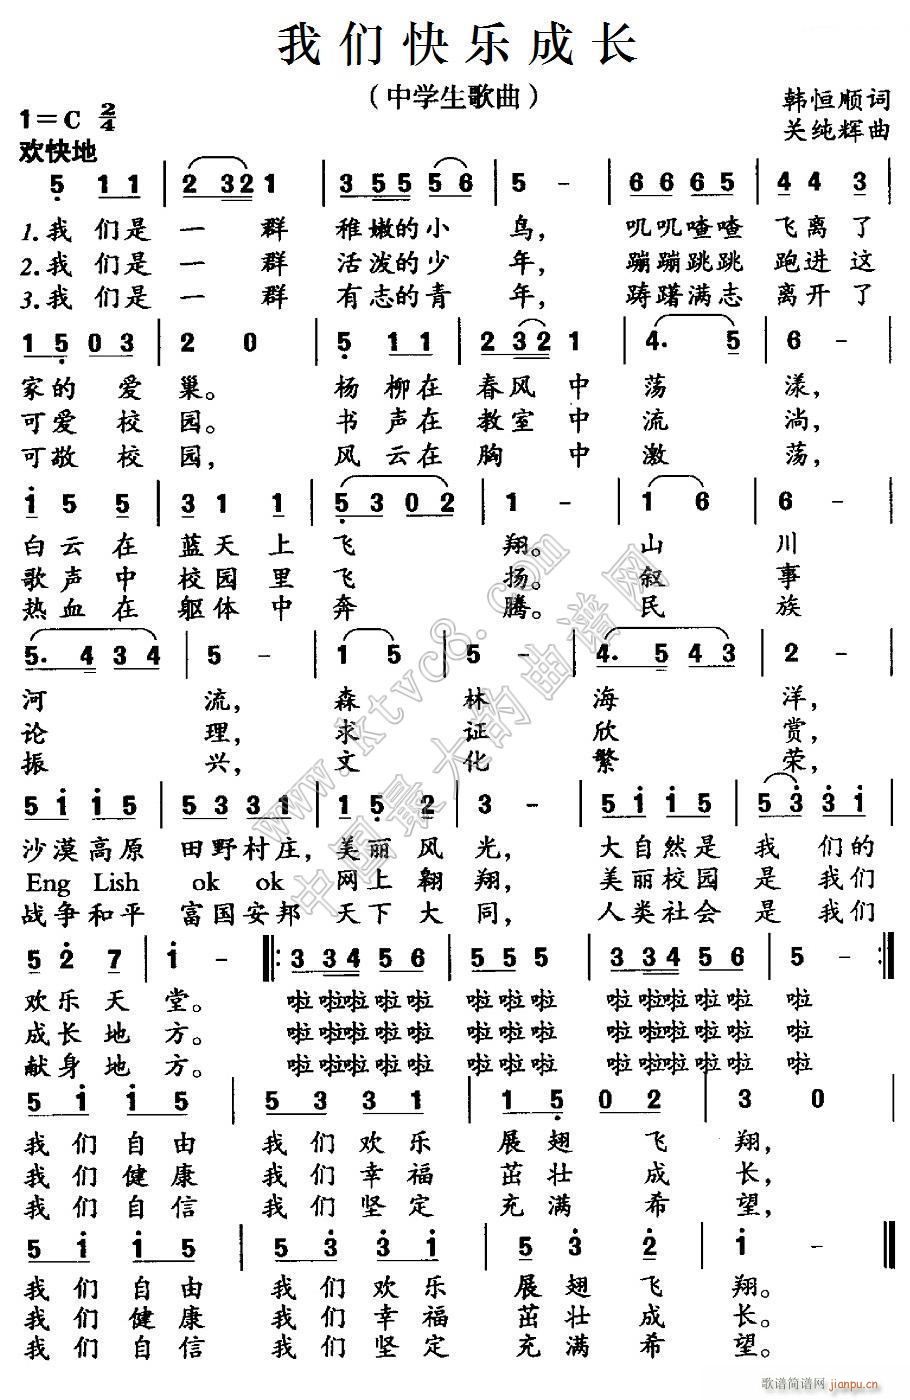 我们快乐成长
（中学生歌曲）
韩恒顺词
1=C 2/4
关纯辉曲
欢快地
5 1 1 | 2 3 2 1 | 3 5 5 5 6 | 5 - | 6 6 6 5 | 4 4 3
1.我 们是 一 群 稚嫩的小 鸟， 叽叽喳喳 飞离了
2.我 们是 一 群 活泼的少 年， 蹦蹦跳跳 跑进这
3.我 们是 一 群 有志的青 年， 踌躇满志 离开了
1 5 0 3 | 2 0 | 5 1 1 | 2 3 2 1 | 4. 5 | 6 -
家的 爱 巢。 杨 柳在 春风 中 荡 漾，
可爱 校 园。 书 声在 教室 中 流 淌，
可敬 校 园， 风 云在 胸 中 激 荡，
i 5 5 | 3 1 1 | 5 3 0 2 | 1 - | 1 6 | 6 -
白 云 在 蓝 天 上 飞 翔。 山 川
歌 声 中 校 园 里 飞 扬。 叙 事
热 血 在 躯 体 中 奔 腾。 民 族
5. 4 3 4 | 5 - | 1 5 | 5 - | 4. 5 4 3 | 2 -
河 流， 森 林 海 洋，
论 理， 求 证 欣 赏，
振 兴， 文 化 繁 荣，
5 i i 5 | 5 3 3 1 | 1 5 2 | 3 - | 5 i i 5 | 5 3 3 i
沙漠高原 田野村庄， 美丽 风 光， 大自然是 我 们的
Eng Lish ok ok 网上 翱 翔， 美丽校园 是 我们
战争和平 富国安邦 天下 大 同， 人类社会 是 我们
5 2 7 | i - |: 3 3 4 5 6 | 5 5 5 | 3 3 4 5 6 | 5 - :|
欢乐 天 堂。 啦 啦啦 啦 啦 啦 啦 啦 啦 啦啦 啦 啦 啦
成长 地 方。 啦 啦啦 啦 啦 啦 啦 啦 啦 啦啦 啦 啦 啦
献身 地 方。 啦 啦啦 啦 啦 啦 啦 啦 啦 啦啦 啦 啦 啦
5 i i 5 | 5 3 3 1 | 1 5 0 2 | 3 0
我 们 自 由 我 们 欢 乐 展 翅 飞 翔，
我 们 健 康 我 们 幸 福 茁 壮 成 长，
我 们 自 信 我 们 坚 定 充 满 希 望，
5 i i 5 | 5 3 3 i | 5 3 2 | i - ‖
我 们 自 由 我 们 欢 乐 展 翅 飞 翔。
我 们 健 康 我 们 幸 福 茁 壮 成 长。
我 们 自 信 我 们 坚 定 充 满 希 望。
www.ktvc8.com
中国最大的曲谱网
歌谱简谱网
jianpu.cn